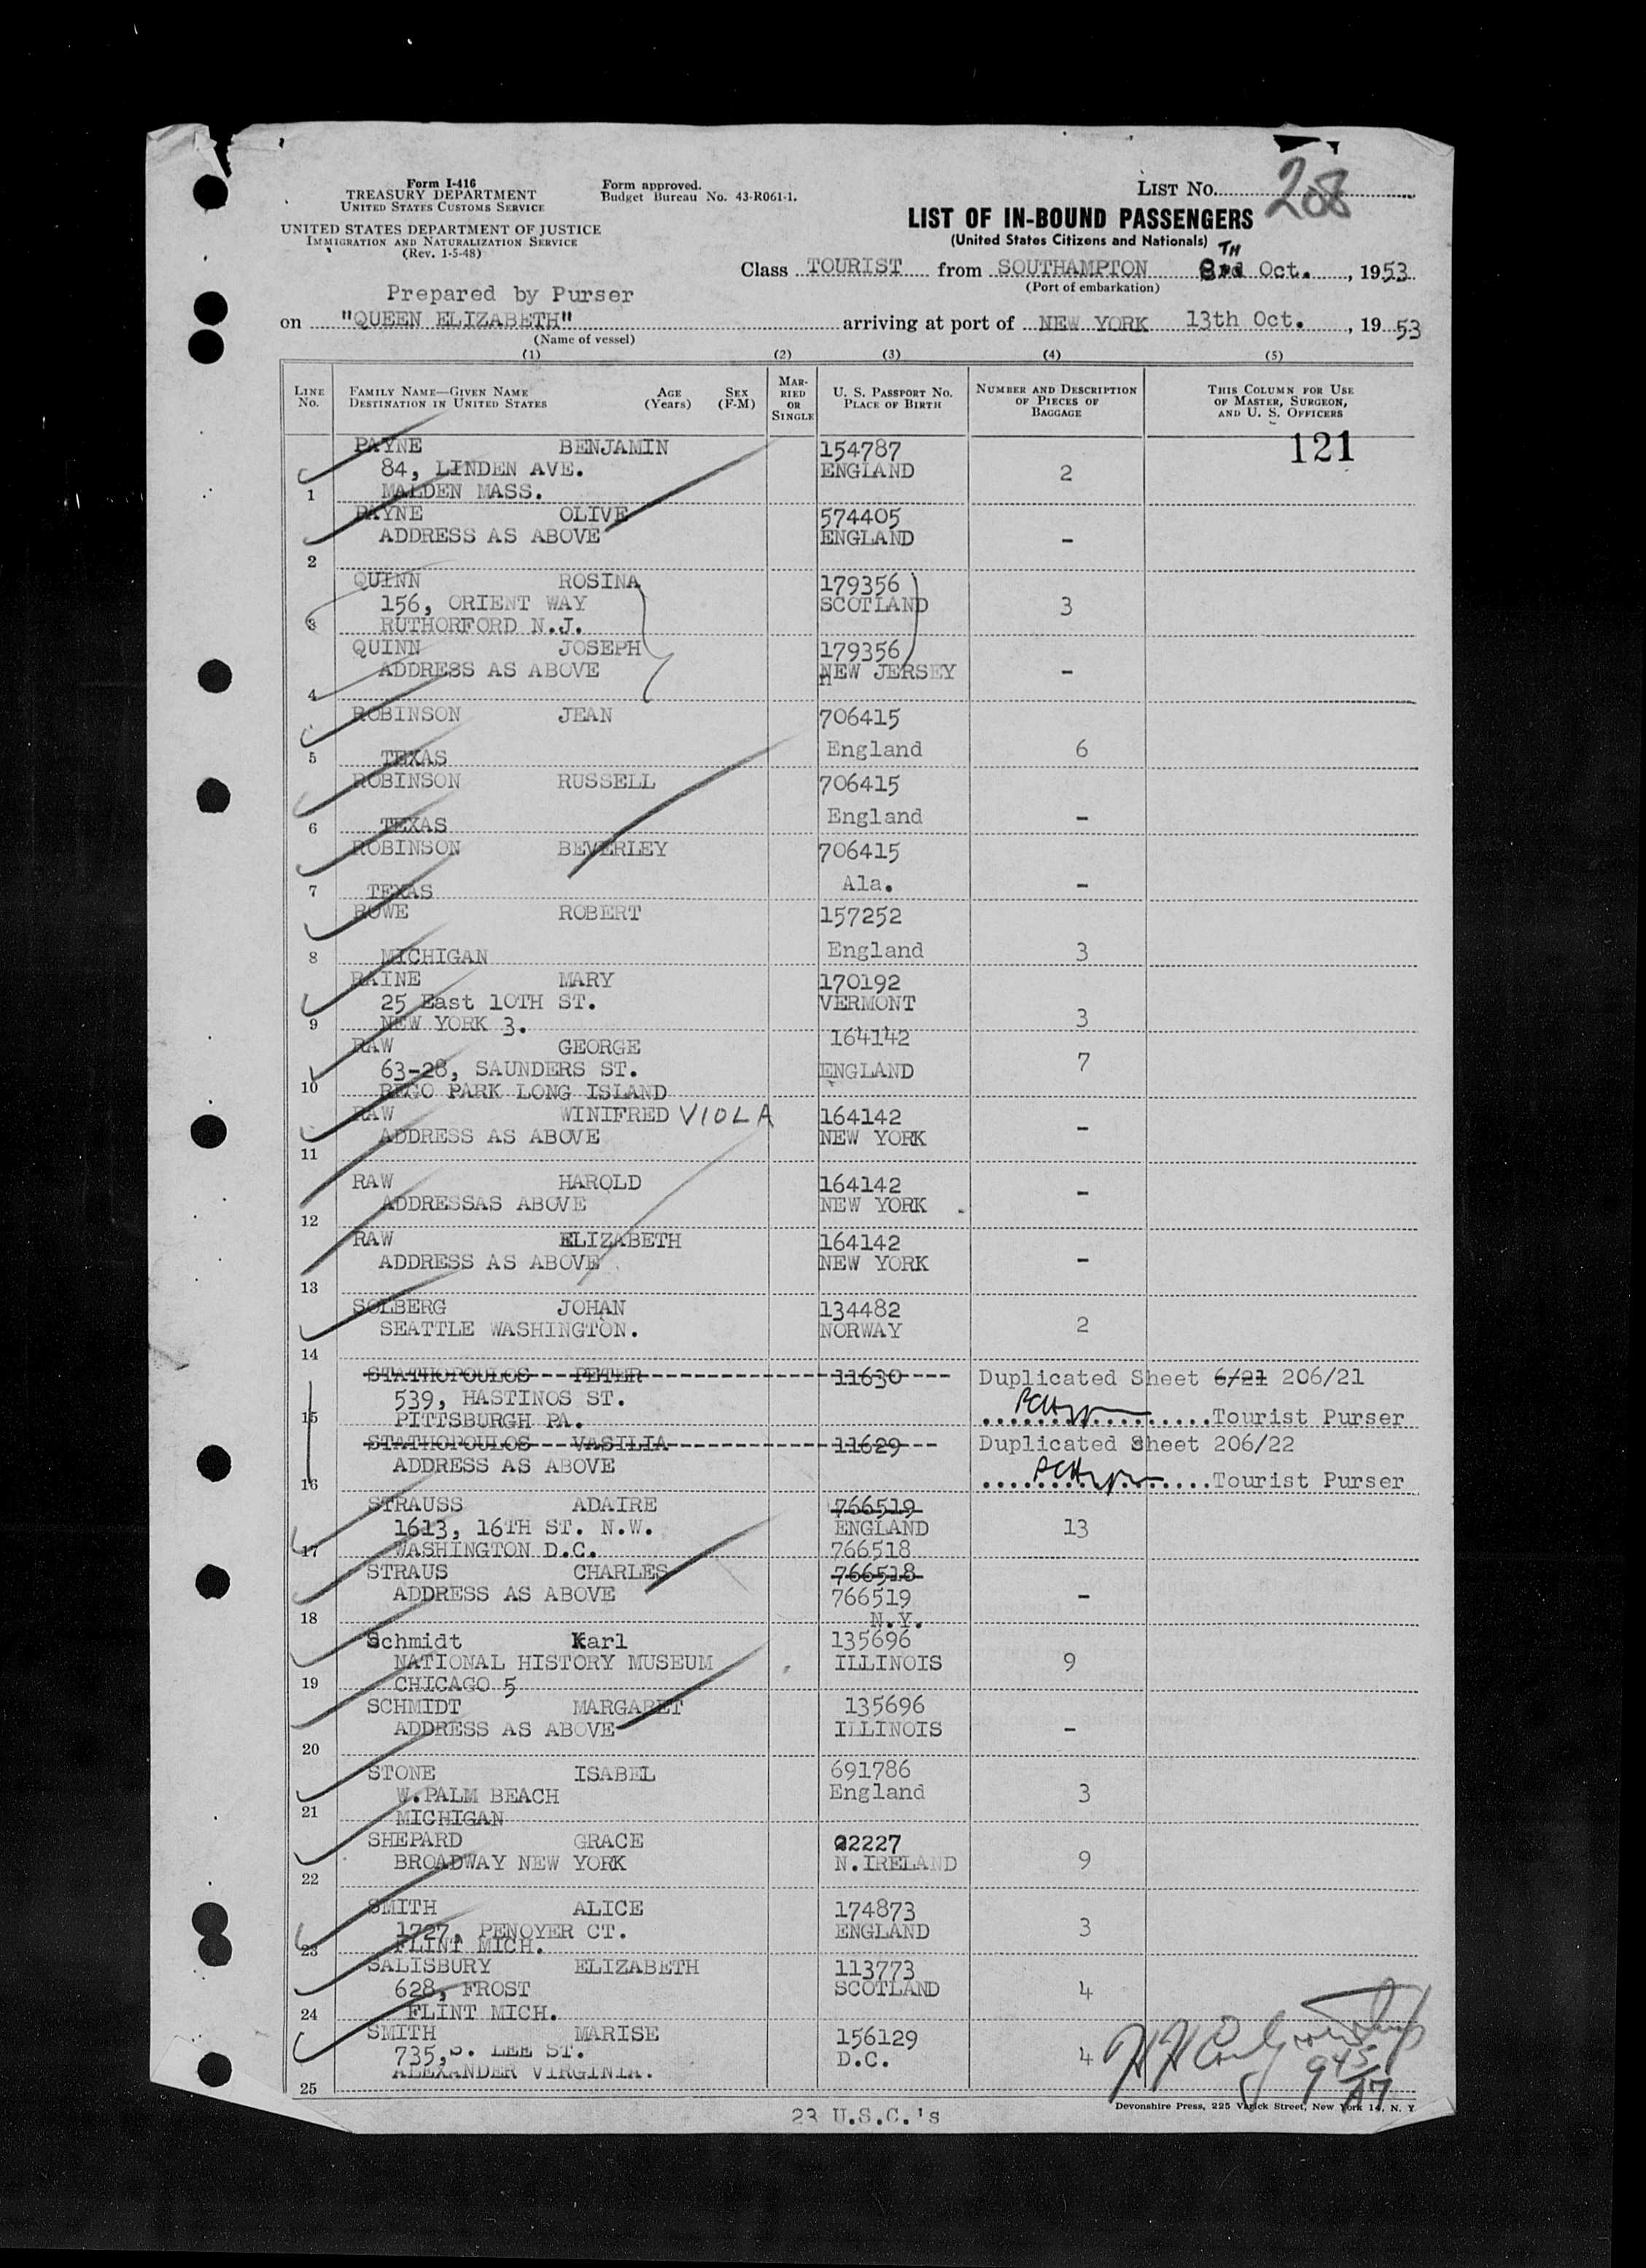 Form I-416
TREASURY DEPARTMENT
UNITED STATES CUSTOMS SERVICE
UNITED STATES DEPARTMENT OF JUSTICE
IMMIGRATION AND NATURALIZATION SERVICE
(Rev. 1-5-48)
Form approved.
Budget Bureau No. 43-R061-1.
LIST No. 208
LIST OF IN-BOUND PASSENGERS
(United States Citizens and Nationals)
Class TOURIST from SOUTHAMPTON 8TH Oct. , 1953
(Port of embarkation)
Prepared by Purser
on "QUEEN ELIZABETH" arriving at port of NEW YORK 13th Oct. , 1953
(Name of vessel)
(1) (2) (3) (4) (5)
LINE No. FAMILY NAME—GIVEN NAME DESTINATION IN UNITED STATES AGE (Years) SEX (F-M) MARRIED OR SINGLE U. S. PASSPORT No. PLACE OF BIRTH NUMBER AND DESCRIPTION OF PIECES OF BAGGAGE THIS COLUMN FOR USE OF MASTER, SURGEON, AND U. S. OFFICERS
121
PAYNE BENJAMIN 154787
84, LINDEN AVE. ENGLAND 2
1 MALDEN MASS.
PAYNE OLIVE 574405
ADDRESS AS ABOVE ENGLAND -
2
QUINN ROSINA 179356
156, ORIENT WAY SCOTLAND 3
3 RUTHORFORD N.J.
QUINN JOSEPH 179356
ADDRESS AS ABOVE NEW JERSEY -
4
ROBINSON JEAN 706415
England 6
5 TEXAS
ROBINSON RUSSELL 706415
England -
6 TEXAS
ROBINSON BEVERLEY 706415
Ala. -
7 TEXAS
ROWE ROBERT 157252
England 3
8 MICHIGAN
RAINE MARY 170192
25 East 10TH ST. VERMONT
9 NEW YORK 3. 3
RAW GEORGE 164142
63-28, SAUNDERS ST. ENGLAND 7
10 REGO PARK LONG ISLAND
RAW WINIFRED VIOLA 164142
ADDRESS AS ABOVE NEW YORK -
11
RAW HAROLD 164142
ADDRESSAS ABOVE NEW YORK -
12
RAW ELIZABETH 164142
ADDRESS AS ABOVE NEW YORK -
13
SOLBERG JOHAN 134482
SEATTLE WASHINGTON. NORWAY 2
14
STATHOPOULOS PETER 11630 Duplicated Sheet 6/21 206/21
539, HASTINOS ST.
15 PITTSBURGH PA. Tourist Purser
STATHOPOULOS VASILIA 11629 Duplicated Sheet 206/22
ADDRESS AS ABOVE
16 Tourist Purser
STRAUSS ADAIRE 766519
1613, 16TH ST. N.W. ENGLAND 13
17 WASHINGTON D.C. 766518
STRAUS CHARLES 766518
ADDRESS AS ABOVE 766519 -
18 N.Y.
Schmidt Karl 135696
NATIONAL HISTORY MUSEUM ILLINOIS 9
19 CHICAGO 5
SCHMIDT MARGARET 135696
ADDRESS AS ABOVE ILLINOIS -
20
STONE ISABEL 691786
W.PALM BEACH England 3
21 MICHIGAN
SHEPARD GRACE 22227
BROADWAY NEW YORK N.IRELAND 9
22
SMITH ALICE 174873
1727, PENOYER CT. ENGLAND 3
23 FLINT MICH.
SALISBURY ELIZABETH 113773
628, FROST SCOTLAND 4
24 FLINT MICH.
SMITH MARISE 156129
735,S. LEE ST. D.C. 4
ALEXANDER VIRGINIA.
25
Devonshire Press, 225 Varick Street, New York 14, N. Y
23 U.S.C.'s